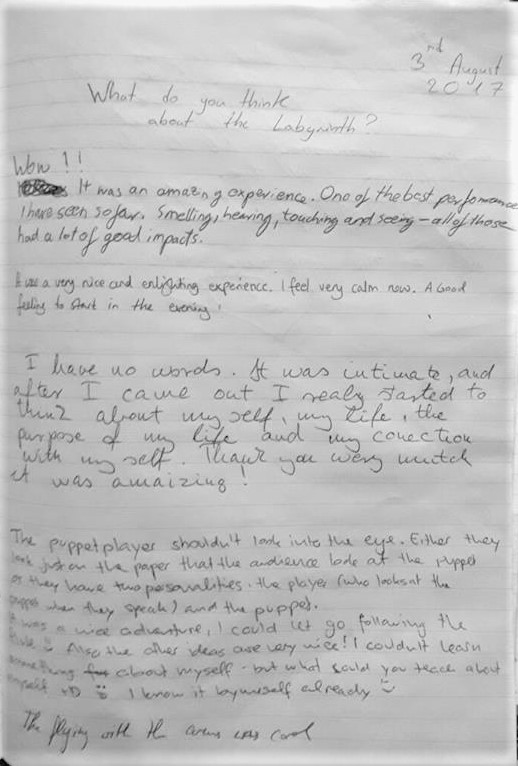 3rd August
2017
What do you think
about the Labyrinth?
Wow!!
It was an amazing experience. One of the best performance
I have seen so far. Smelling, hearing, touching and seeing – all of those
had a lot of good impacts.
It was a very nice and enlighting experience. I feel very calm now. A Good
feeling to start in the evening!
I have no words. It was intimate, and
after I came out I realy started to
think about my self, my life, the
purpose of my life and my conection
with my self. Thank you wery mutch
it was amaizing!
The puppetplayer shouldn't look into the eye. Either they
look just on the paper that the audience look at the puppet
or they have two personalities. the player (who looks at the
puppet when they speak) and the puppet.
It was a nice adventure, I could let go following the
Also the other ideas are very nice! I couldn't learn
something about myself - but what could you teach about
myself I know it by myself already
The flying with the arms was cool